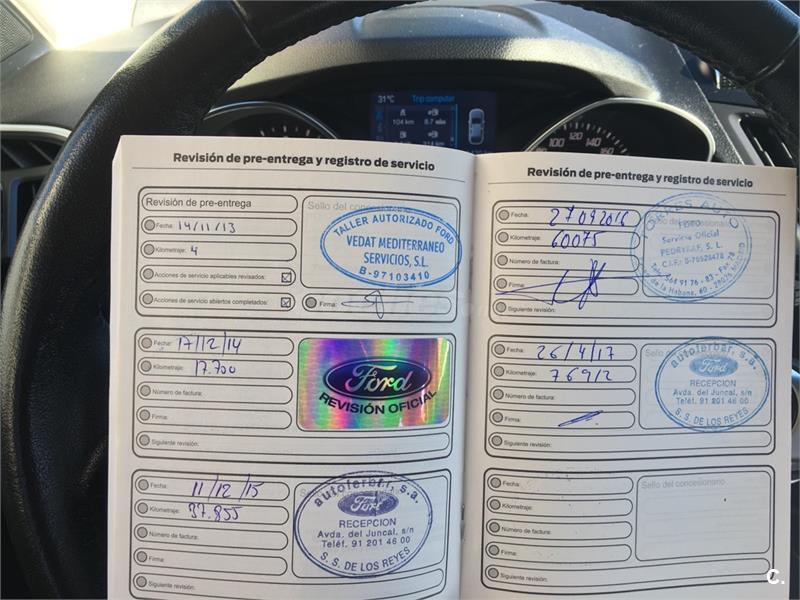 31°C Trip computer
104 km 8.7
314 km
100 120 140 160
Revisión de pre-entrega y registro de servicio
Revisión de pre-entrega
Sello del concesionario
Fecha: 14/11/13
Kilometraje: 4
Acciones de servicio aplicables revisados:
Acciones de servicio abiertos completados:
Firma:
TALLER AUTORIZADO FORD
VEDAT MEDITERRANEO
SERVICIOS, S.L.
B-97103410
Fecha: 17/12/14
Kilometraje: 17.700
Número de factura:
Firma:
Siguiente revisión:
Ford
REVISIÓN OFICIAL
Fecha: 11/12/15
Kilometraje: 37.855
Número de factura:
Firma:
Siguiente revisión:
autoferbar, s.a.
Ford
RECEPCION
Avda. del Juncal, s/n
Teléf. 91 201 46 00
S. S. DE LOS REYES
Revisión de pre-entrega y registro de servicio
Fecha: 27092016
Kilometraje: 60075
Número de factura:
Firma:
Siguiente revisión:
Sello del concesionario
FORD
Servicio Oficial
Fecha: 26/4/17
Kilometraje: 76912
Número de factura:
Firma:
Siguiente revisión:
autoferbar, s.a.
Ford
RECEPCION
Avda. del Juncal, s/n
Teléf. 91 201 46 00
S. S. DE LOS REYES
Fecha:
Kilometraje:
Número de factura:
Firma:
Siguiente revisión:
Sello del concesionario
C.